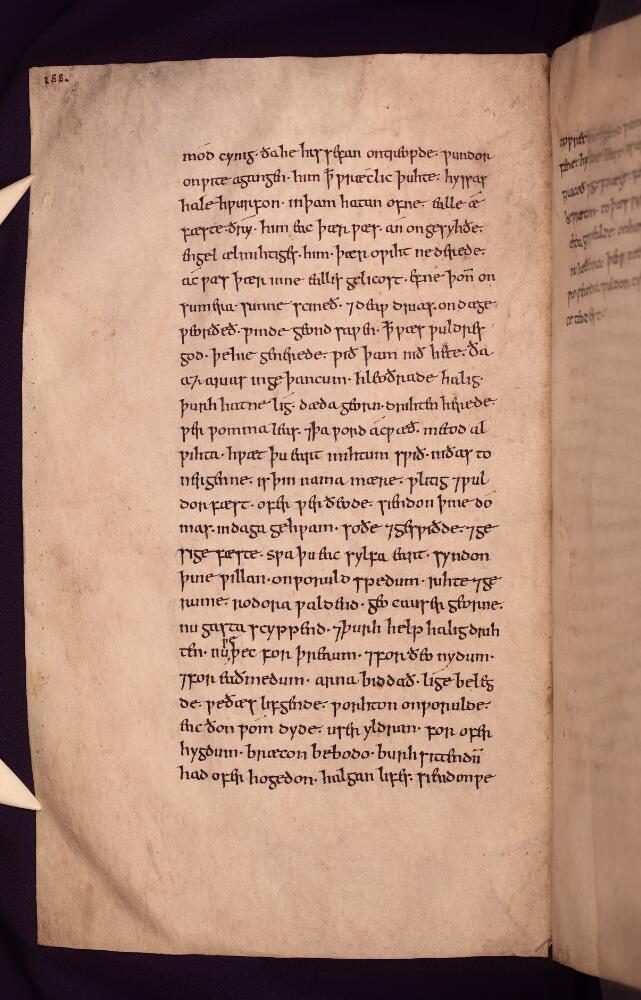 188.
mod cynig· ða he his sefan ontreoƿde· ƿundor
on ƿite agangen· him ꝥ ƿræclic þuhte· hyssas
hale hƿurfon· in þam hatan ofne· ealle æ
fæste ðry· him eac þær ƿæs· an on gesyhðe·
engel ælmihtiges· him· þær oƿiht ne derede·
ac ƿæs þær inne ealles gelicost· efne þoñ on
sumera sunne scineð· ⁊ deaƿ drias· on dæge
ƿeorðeð· ƿinde geond saƿen· ꝥ ƿæs ƿuldres
god· þe hie generede· ƿið þam nið hete· ða
az· arias inge þancum· hleoðrade halig·
þurh hatne lig· dæda georn· drihten herede·
ƿer ƿomma leas· ⁊ þa ƿord acƿæð· metod al
ƿihta· hƿæt þu eart mihtum sƿið· niðas to
nergenne· is þin nama mære· ƿlitig ⁊ ƿul
dor fæst· ofer ƿer ðeode· siendon þine do
mas· in daga gehƿam· soðe ⁊ gesƿiðde· ⁊ ge
sige fæste· sƿa þu eac sylfa eart· syndon
þine ƿillan· on ƿoruld spedum· rihte ⁊ ge
rume· rodora ƿaldend· geo ca user georne·
nu gasta scyppend· ⁊ þurh help halig drih
ten· nu ƿe þec for þreaum· ⁊ for ðeo nydum·
⁊ for eaðmedum· arna biddað· lige beleg
de· ƿe ðæs lifgende· ƿorhton on ƿorulde·
eac ðon ƿom dyde· user yldran· for ofer
hygdum· bræcon bebodo· burh sittendū
had ofer hogedon· halgan lifes· siendon ƿe